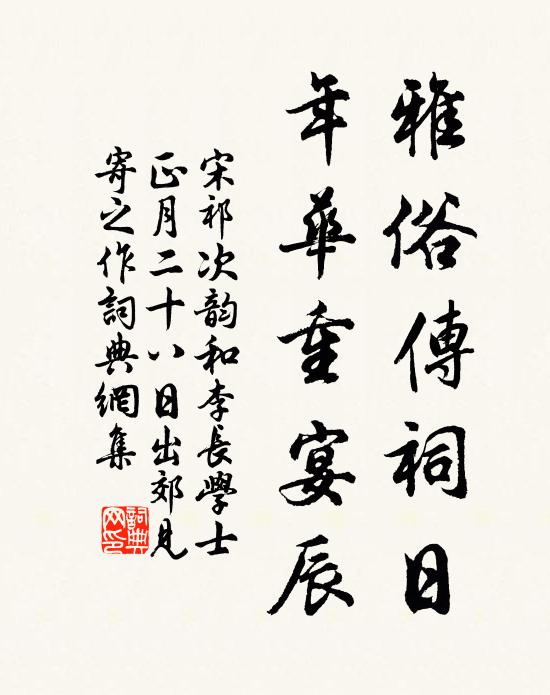 雅俗傳祠日
年華重宴辰
宋祁次韵和李長學士
正月二十八日出郊見
寄之作詞典網集
詞典网印